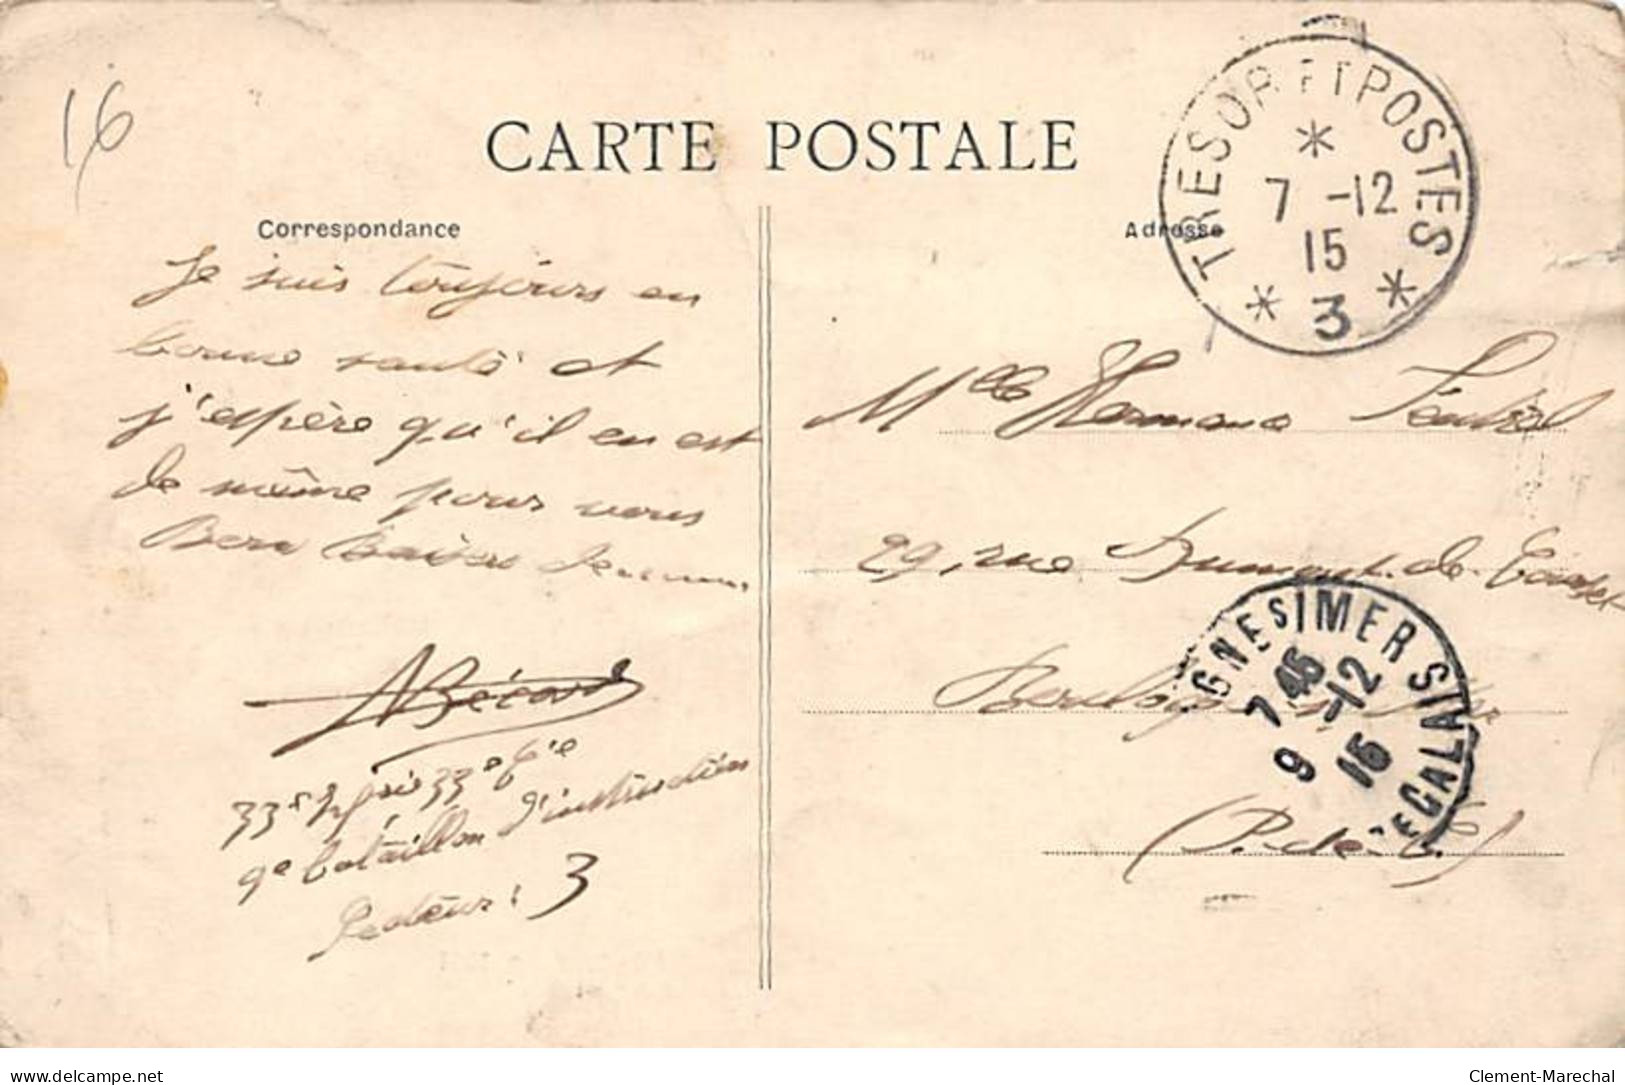 16
CARTE POSTALE
TRESOR ET POSTES
7 -12
15
3
Correspondance
Adresse
Je suis toujours en
bonne santé et
j'espère qu'il en est
de même pour vous
Bons baisers
33e 33e Cie
9e bataillon d'instruction
Secteur: 3
Melle
29, rue Dumont-de-
Boulogne s/Mer
(P.-de-C.)
GNE S/MER
7 45
9 -12
15
CALAIS
delcampe.net
Clement-Marechal